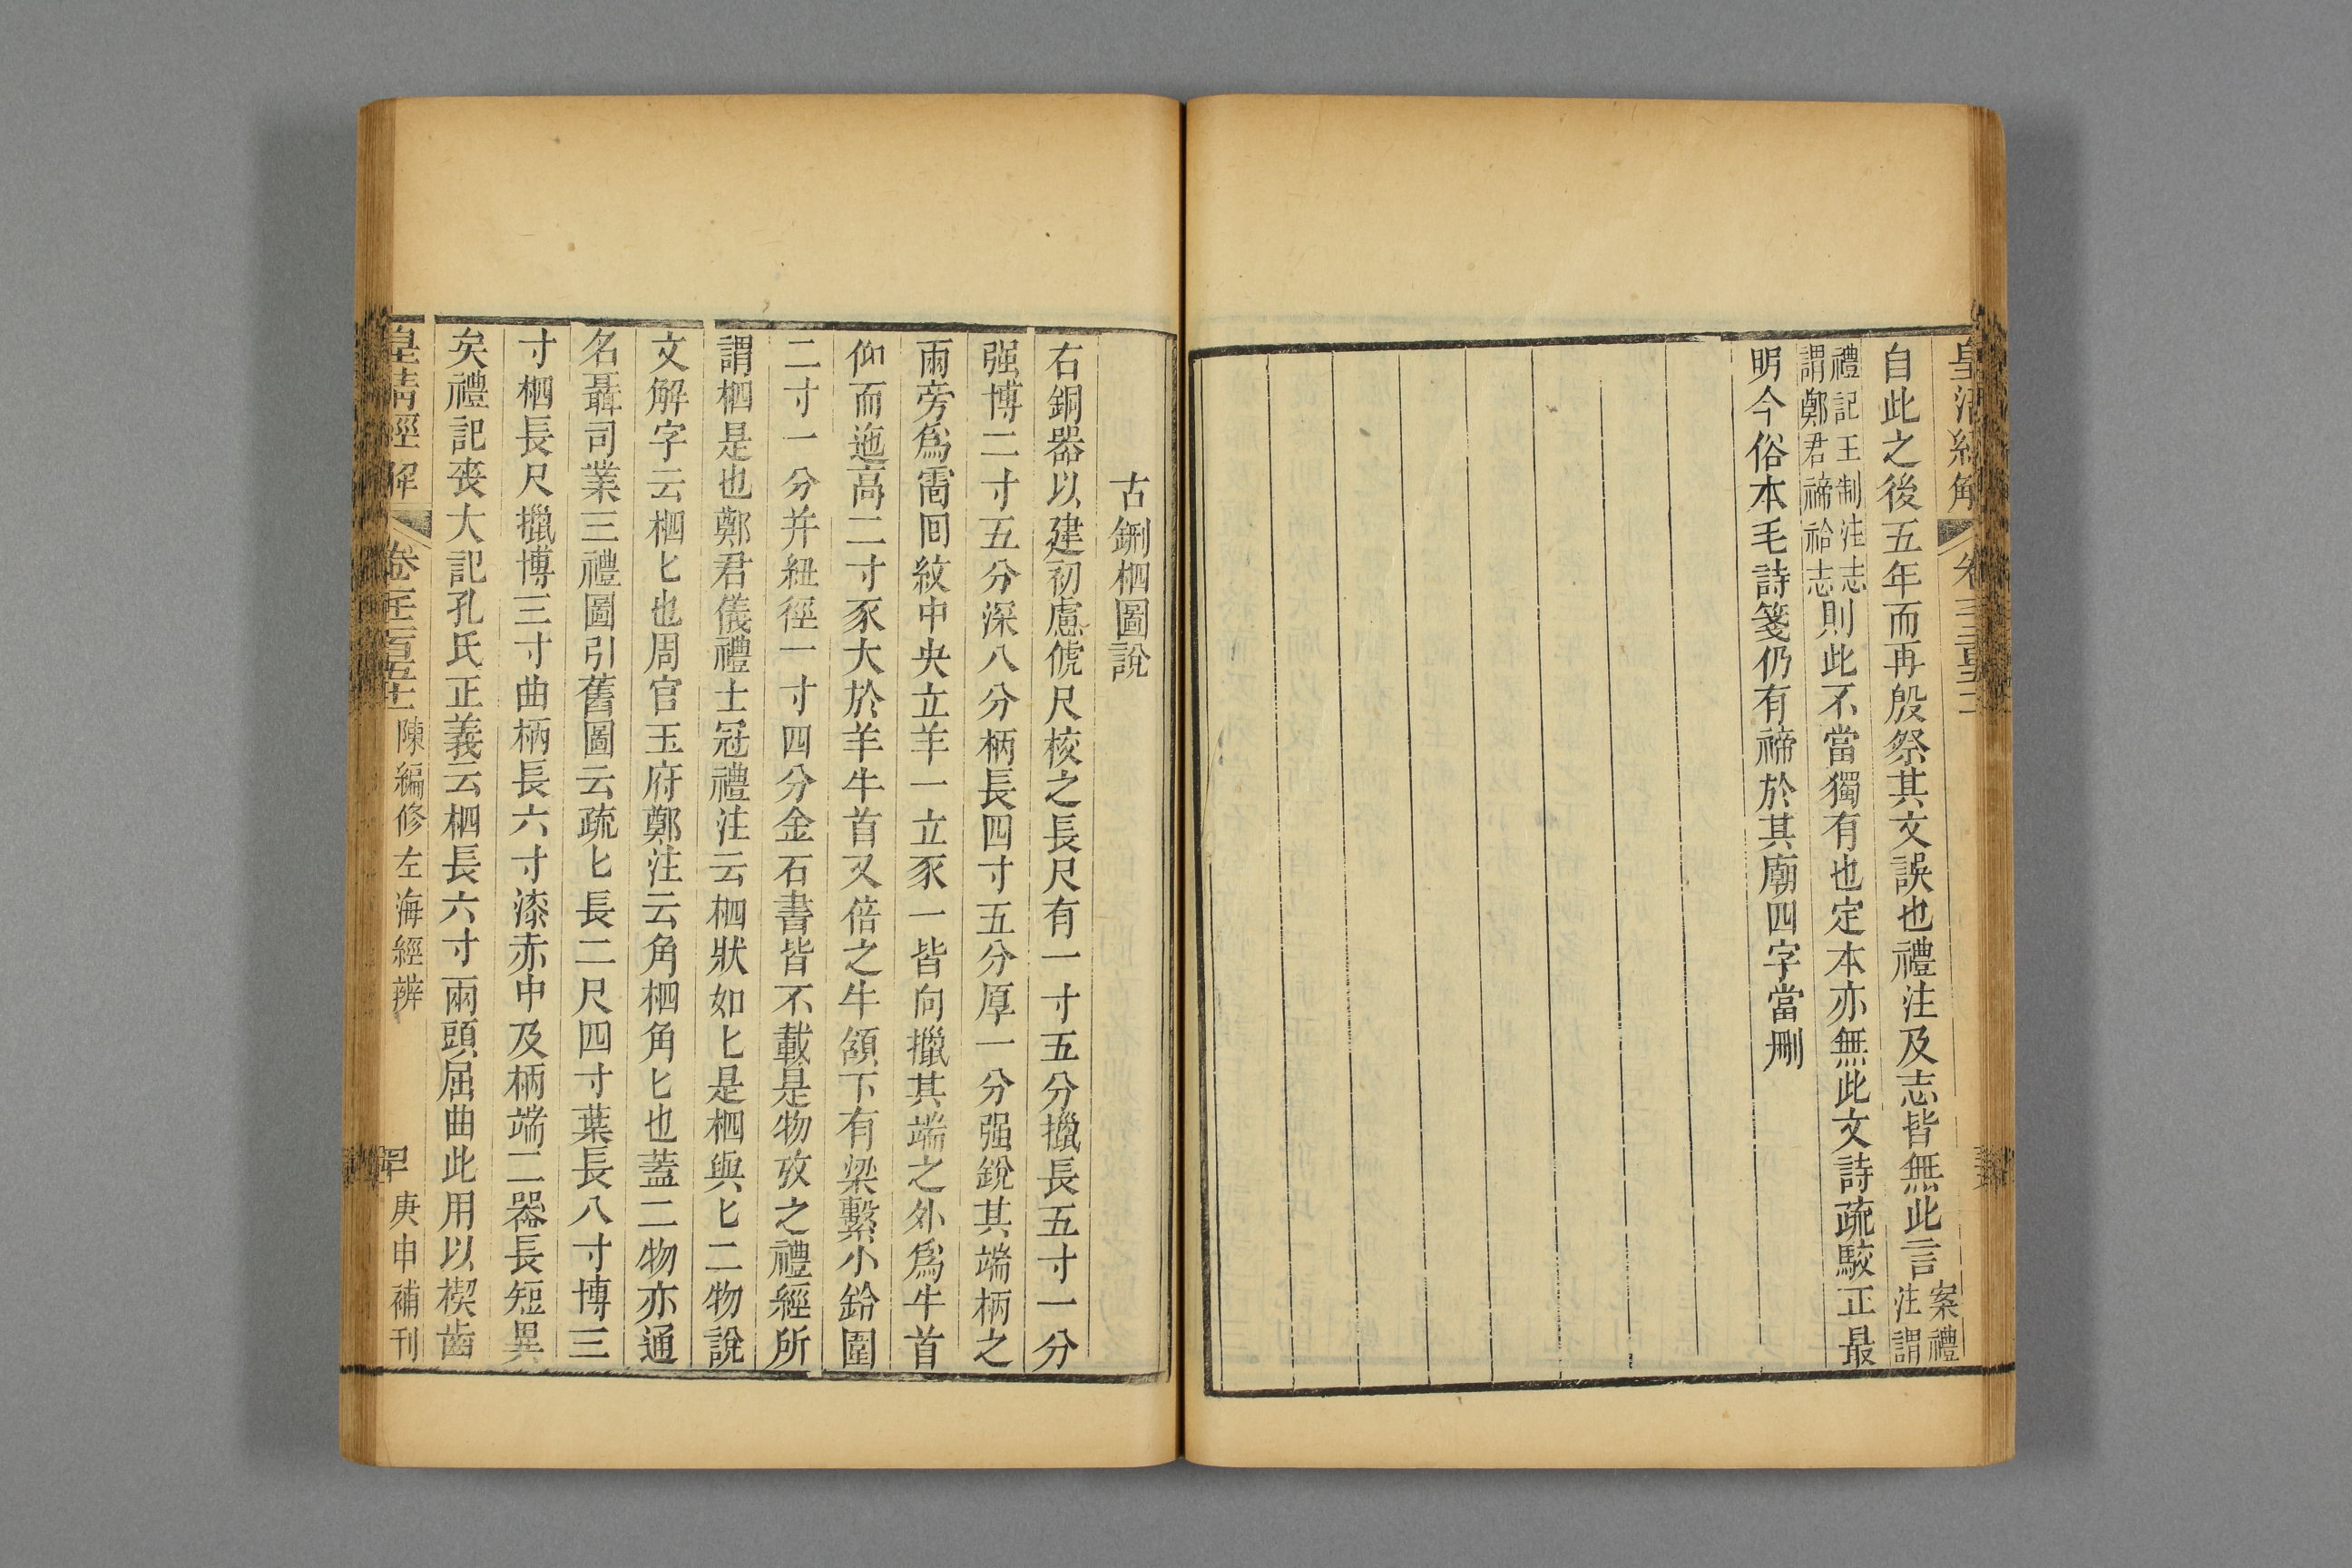 皇清經解
自此之後五年而再殷祭其文誤也禮注及志皆無此言案禮注謂
禮記王制注志謂鄭君禘祫志則此不當獨有也定本亦無此文詩疏駮正最
明今俗本毛詩箋仍有禘於其廟四字當刪
古鉶柶圖說
右銅器以建初慮俿尺校之長尺有一寸五分擸長五寸一分
强博二寸五分深八分柄長四寸五分厚一分强銳其端柄之
兩旁爲雷囘紋中央立羊一立豕一皆向擸其端之外爲牛首
仰而迤高二寸豕大於羊牛首又倍之牛頷下有梁繫小鈴圍
二寸一分并紐徑一寸四分金石書皆不載是物攷之禮經所
謂柶是也鄭君儀禮士冠禮注云柶狀如匕是柶與匕二物說
文解字云柶匕也周官玉府鄭注云角柶角匕也蓋二物亦通
名聶司業三禮圖引舊圖云疏匕長二尺四寸葉長八寸博三
寸柶長尺擸博三寸曲柄長六寸漆赤中及柄端二器長短異
矣禮記喪大記孔氏正義云柶長六寸兩頭屈曲此用以楔齒
皇清經解 陳編修左海經辨 庚申補刊